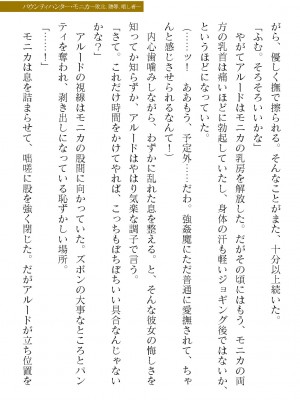 バウンティハンター・モニカ～敗北、
がら、優しく撫で擦られる。そんなことがまた、十分以上続いた。
「ふむ。そろそろいいかな」
　やがてアルードはモニカの乳房を解放した。だがその頃にはもう、モニカの両
方の乳首は痛いほどに勃起していたし、身体の汗も軽いジョギング後ではないか、
というほどになっていた。
（……ッ！　ああもう、予定外……だわ。強姦魔にただ普通に愛撫されて、ちゃ
んと感じさせられるなんて！）
　内心歯噛みしながら、わずかに乱れた息を整える。と、そんな彼女の悔しさを
知ってか知らずか、アルードはやはり気楽な調子で言う。
「さて。これだけ時間をかけてやれば、こっちもぼちぼちいい具合なんじゃない
かな？」
　アルードの視線はモニカの股間に向かっていた。ズボンの大事なところとパン
ティを奪われ、剥き出しになっている恥ずかしい場所。
　モニカは息を詰まらせて、咄嗟に股を強く閉じた。だがアルードが立ち位置を